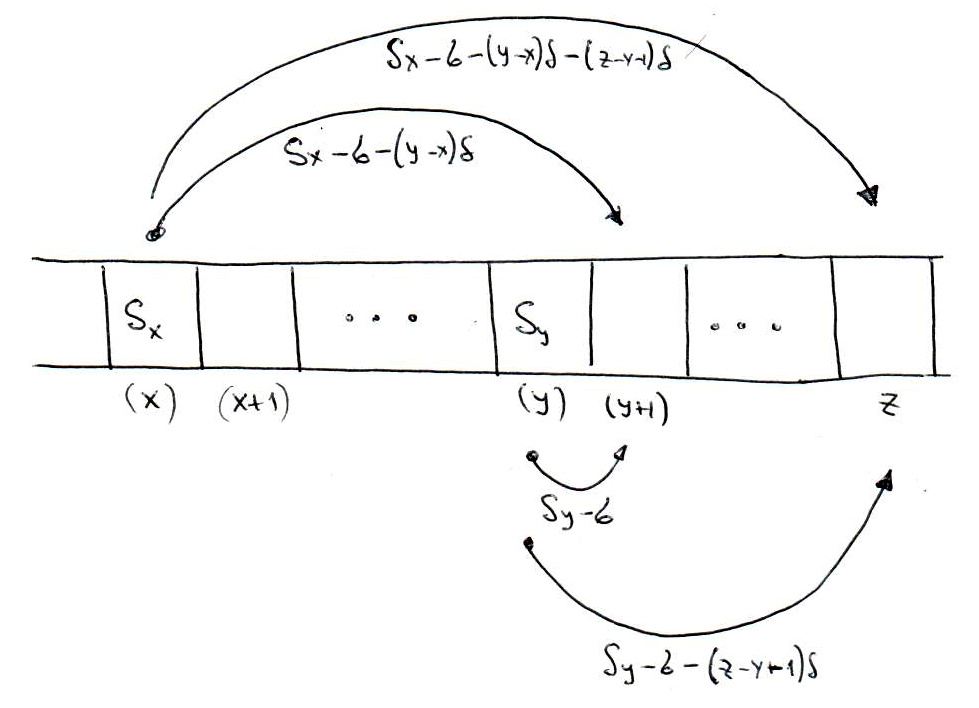 Sx-6-(y-x)δ-(z-y+1)δ
Sx-6-(y-x)δ
Sx ... Sy ...
(x) (x+1) (y) (y+1) z
Sy-6
Sy-6-(z-y+1)δ